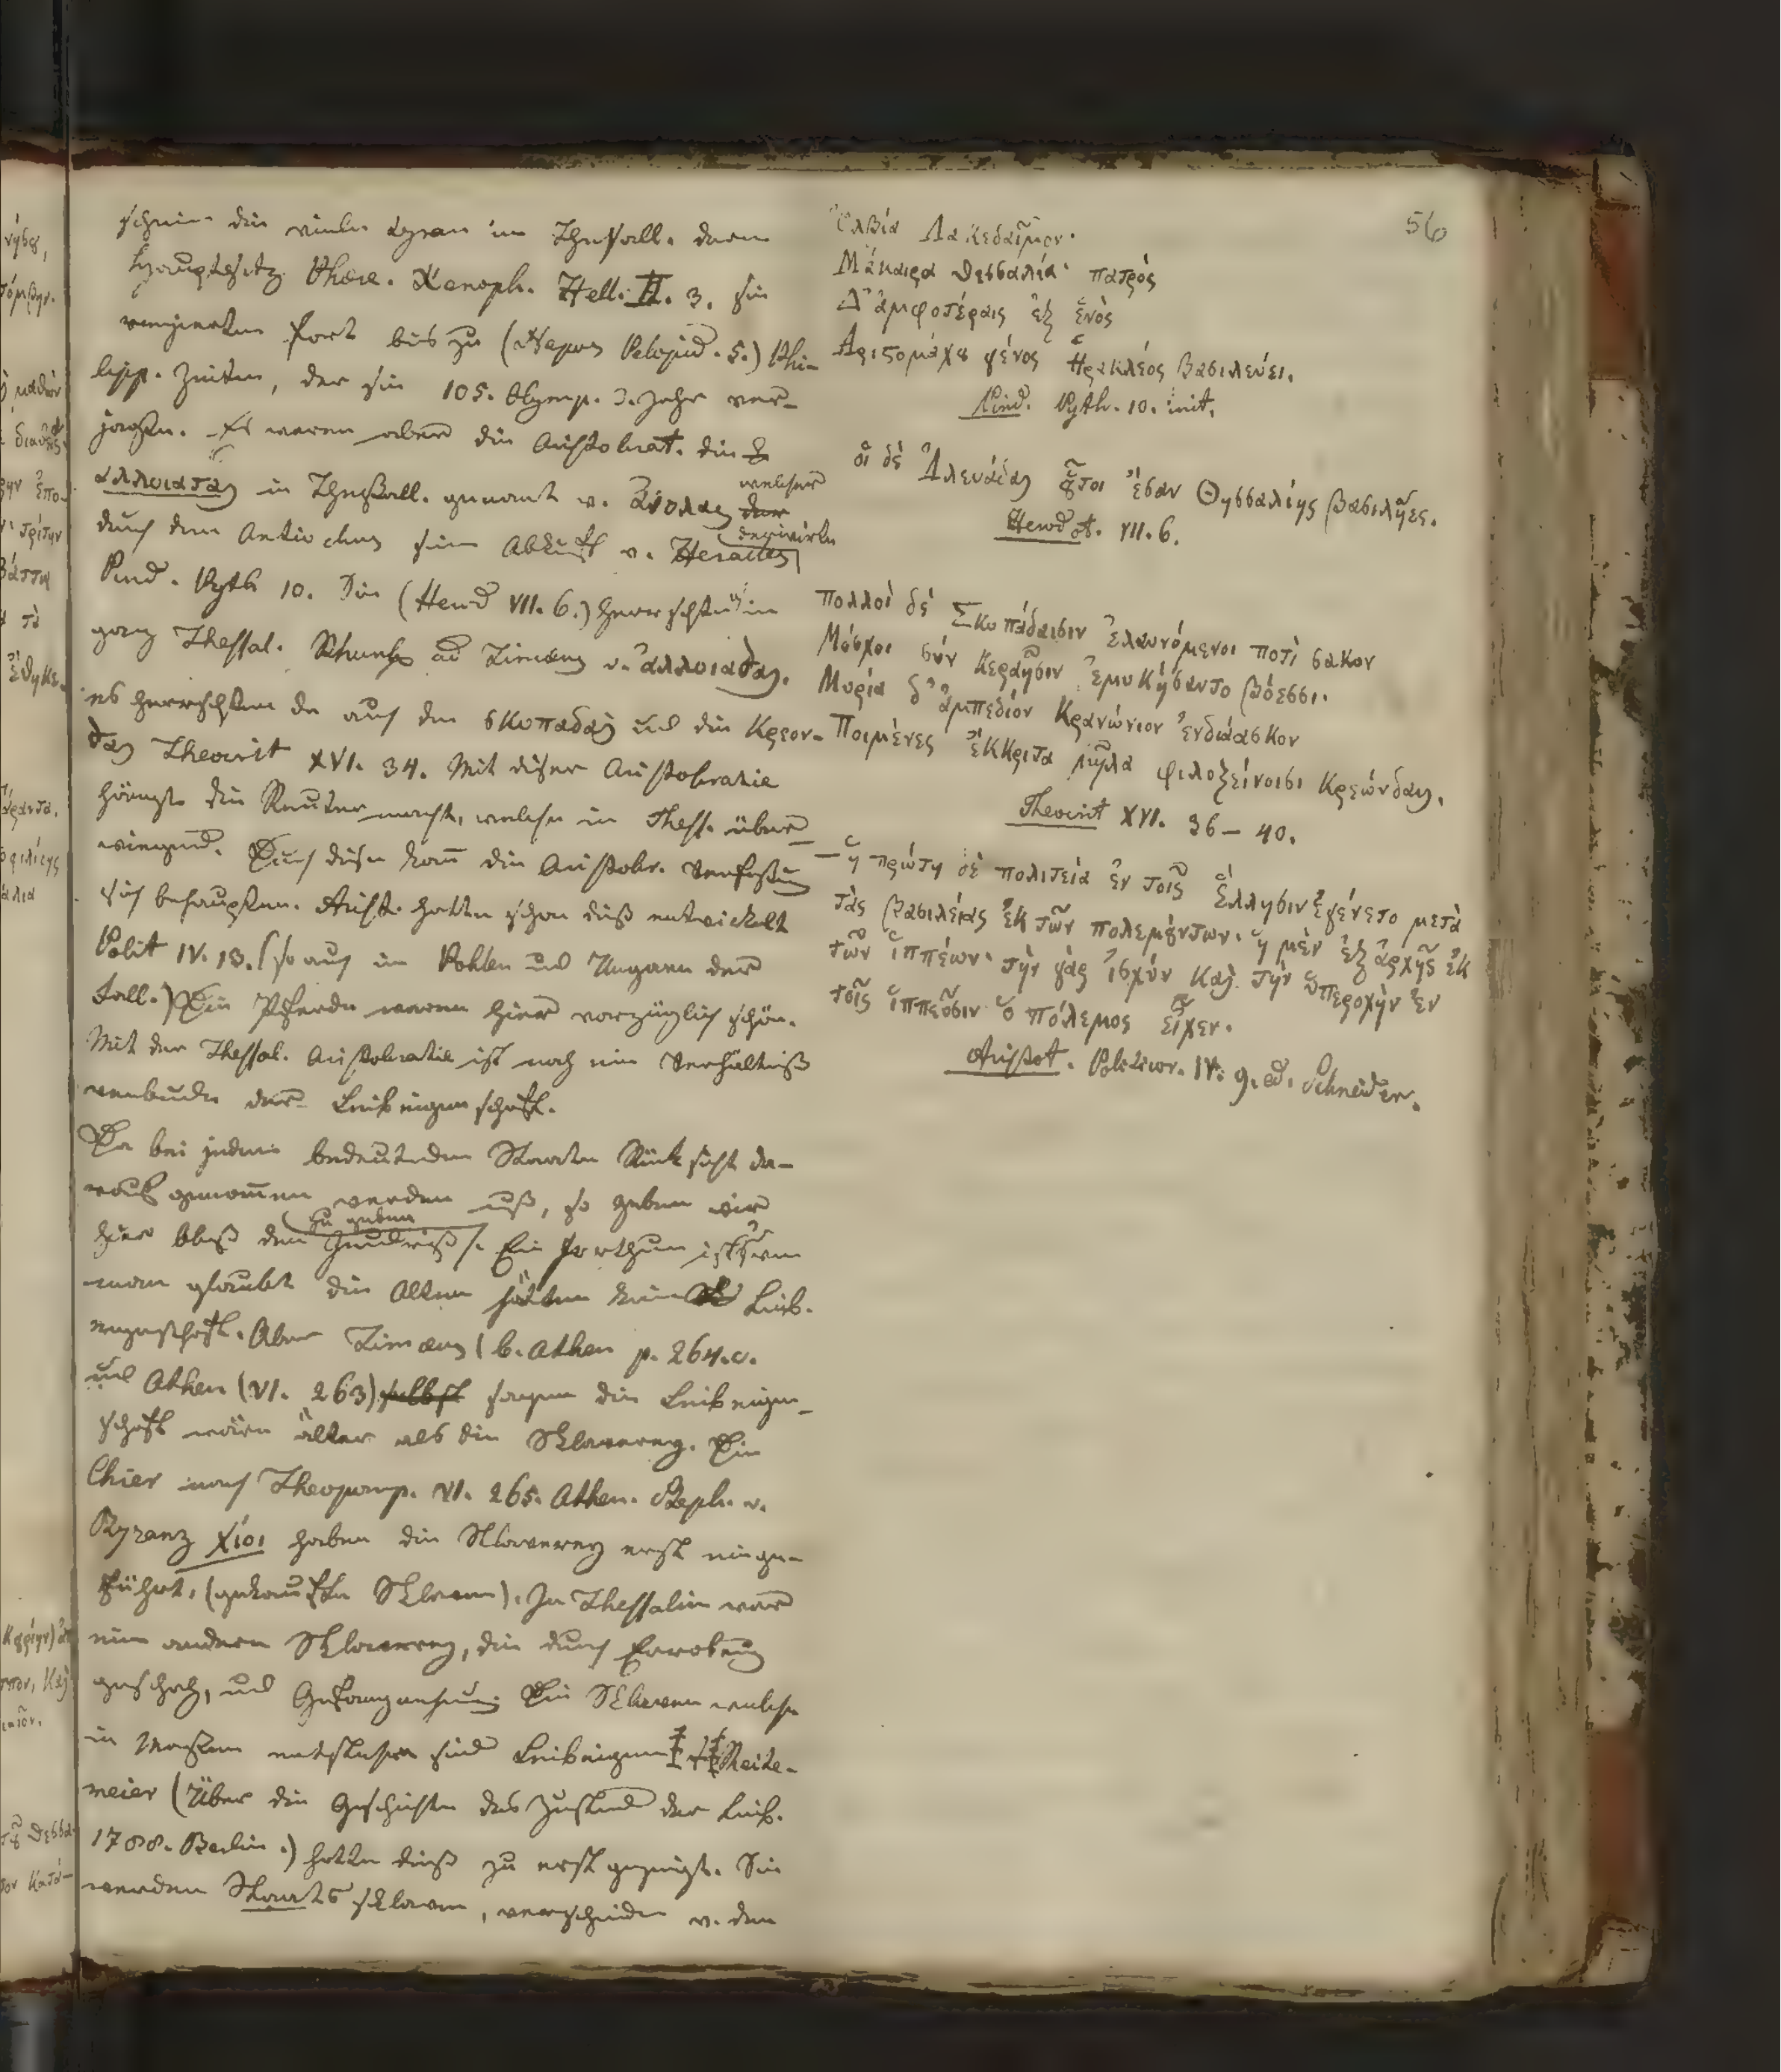 56
schein die viele Tyran in Thessall. deren
Hauptsitz Pherae. Xenoph. Hell. II. 3. sie
regierten fort bis zu (Nepos Pelopid. 5.) Phi-
lipp. Zeiten, der sie 105. Olymp. 3. Jahr ver-
jagte. Es waren aber die Aristokrat. die
in Thessall. genant v. welcher
durch den Antiochus seine Abkunft v. Heracles derivirte
Pind. Pyth 10. Die (Herod VII. 6.) herrschten in
ganz Thessal. Schwebs ad Timaeus v.
es herrschten da auch die σκοπαδαι und die Κρεον-
δαι Theocrit XVI. 34. Mit diser Aristokratie
hängt die Reuter macht, welche in Thess. über-
wiegend. Durch diese kan die Aristokr. Verfassung
sich behaupten. Arist. hatte schon dieß entwickelt
Polit IV. 13. (so auch in Pohlen und Ungarn der
Fall.) Die Pferde waren hier vorzüglich schön.
Mit der Thessal. Aristokratie ist noch ein Verhältniß
verbunden der Leibeigenschaft.
Da bei jedem bedeutenden Staate Rücksicht da-
rauf genommen werden muß, so geben wir
hier bloß den Grundriß zu geben. Ein Irrthum ist es wenn
man glaubt die Alten hätten keine Leib-
eigenschaft. Aber Timaeus (b. Athen p. 264. c.
und Athen (VI. 263) selbst sagen die Leibeigen-
schaft wäre älter als die Sklaverey. Die
Chier nach Theopomp. VI. 265. Athen. Steph. v.
Byzanz Χίοι haben die Sklaverey erst einge-
führt, (gekaufte Sklaven). In Thessalien war
eine andere Sklaverey, die durch Eroberung
geschah, und Gefangennehmung. Die Sklaven welche
in Massen entstehen sind Leibeigene Reite-
meier (Über die Geschichte des Zustand der Leib.
1788. Berlin.) hatte dieß zu erst gezeigt. Sie
werden Staats sklaven, verschieden v. den
Ὀλβία Λακεδαῖμον.
Μάκαιρα Θεσσαλία· πατρὸς
Δ' ἀμφοτέραις ἐξ ἑνὸς
Ἀριστομάχου γένος Ἡρακλέος βασιλεύει.
Pind. Pyth. 10. init.
οἱ δὲ Ἀλευάδαι οὗτοι ἔσαν Θησσαλίης βασιλῆες.
Herodot. VII. 6.
πολλοὶ δὲ Σκοπάδαισιν ἐλαυνόμενοι ποτὶ σακον
Μόσχοι σὺν κεραῇσιν ἐμυκήσαντο βόεσσι.
Μυρία δ' ἀμπεδίον Κρανώνιον ἐνδιάασκον
Ποιμένες ἔκκριτα μῆλα φιλοξείνοισι Κρεώνδαις.
Theocrit XVI. 36–40.
– ἡ πρώτη δὲ πολιτεία ἐν τοῖς Ἕλλησιν ἐγένετο μετὰ
τὰς βασιλείας ἐκ τῶν πολεμούντων. ἡ μὲν ἐξ ἀρχῆς ἐκ
τῶν ἱππέων· τὴν γὰρ ἰσχὺν καὶ τὴν ὑπεροχὴν ἐν
τοῖς ἱππεῦσιν ὁ πόλεμος εἶχεν.
Aristot. Politicor. IV. 9. ed. Schneider.